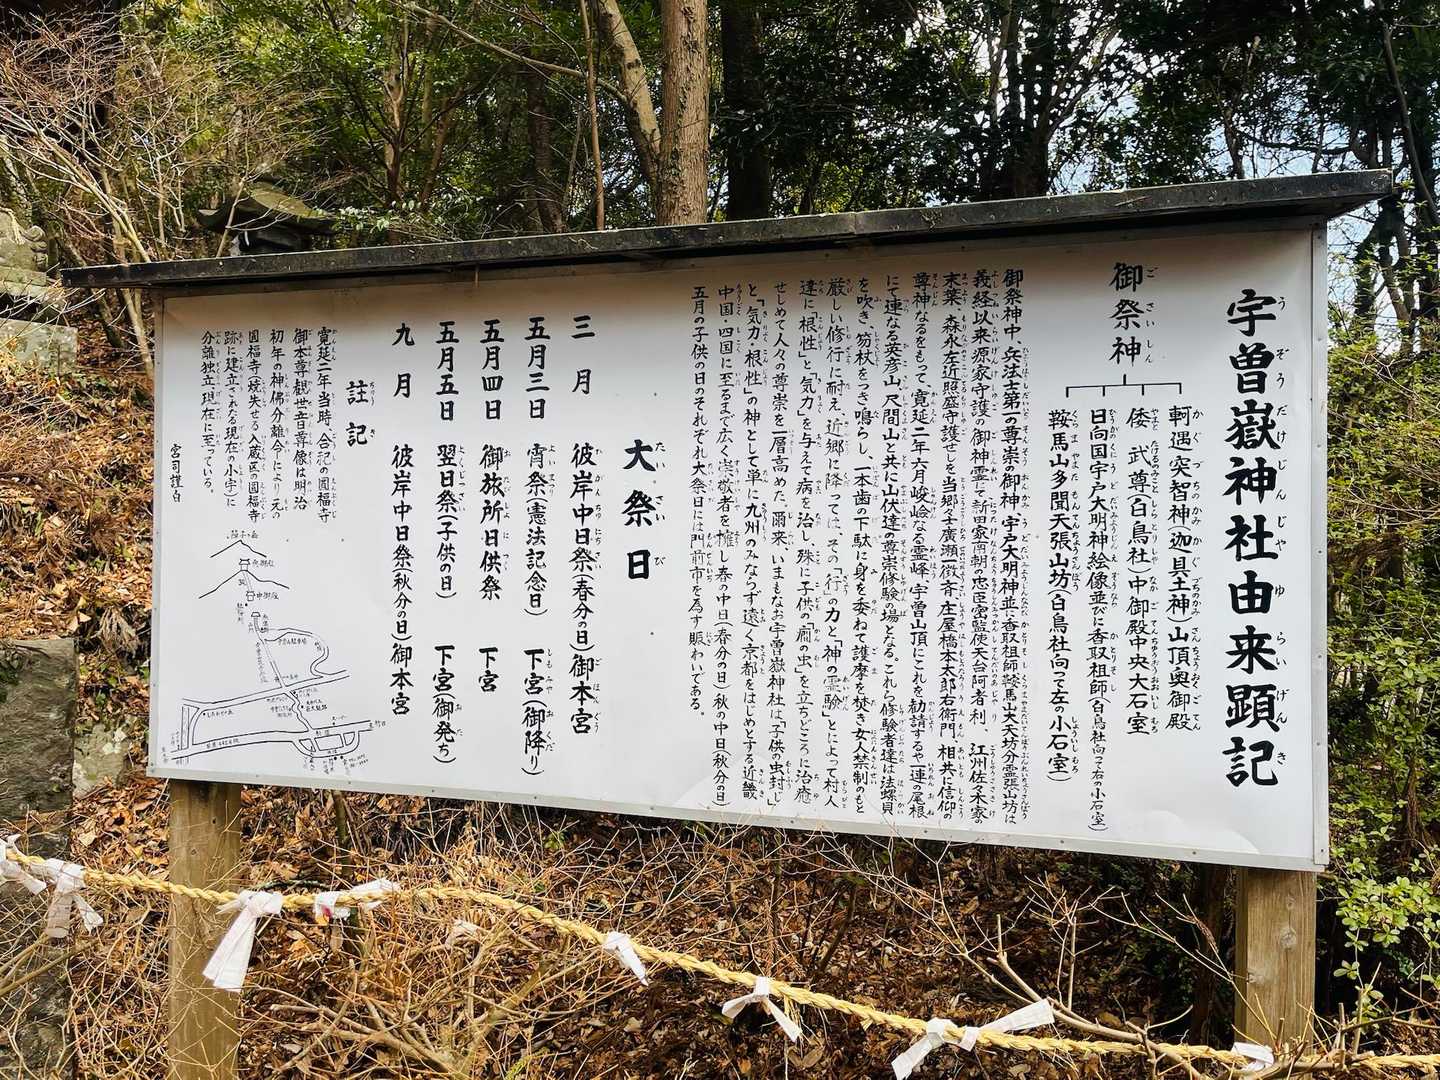 宇曽嶽神社由来顕記
御祭神
軻遇突智神(迦具土神)山頂奥御殿
倭武尊(白鳥社)中御殿中央大石室
日向国宇戸大明神絵像並びに香取祖師(白鳥社向って右の小石室)
鞍馬山多聞天張山坊(白鳥社向って左の小石室)
御祭神中、兵法士第一の尊崇の御神、宇戸大明神並に香取祖師鞍馬山大天坊分霊張山坊は
義経以来源家守護の御神霊にて新田家南朝の忠臣
末葉、森永左近照盛守護せしを当郷士廣瀬徴斉、庄屋橋本太郎右衛門、相共に信仰の
尊神なるをもって、寛延二年六月峻嶮なる霊峰、宇曽山頂にこれを勧請するや一連の尾根
にて連なる英彦山、尺間山と共に山伏達の尊崇修験の場となる。これら修験者達は法螺貝
を吹き、笏杖をつき鳴らし、一本歯の下駄に身を委ねて護摩を焚き女人禁制のもと
厳しい修行に耐え、近郷に降っては、その「行」の力と「神の霊験」とによって村人
達に「根性」と「気力」を与えて病を治し、殊に子供の「疳の虫」を立ちどころに治癒
せしめて人々の尊崇を一層高めた。爾来、いまもなお宇曽嶽神社は「子供の虫封じ」
と「気力・根性」の神として単に九州のみならず遠く京都をはじめとする近畿
中国・四国に至るまで広く崇敬者を擁し春の中日(春分の日)秋の中日(秋分の日)
五月の子供の日のそれぞれ大祭日には門前市を為す賑わいである。
大祭日
三月 彼岸中日祭(春分の日)御本宮
五月三日 宵祭(憲法記念日) 下宮(御降り)
五月四日 御旅所日供祭 下宮
五月五日 翌日祭(子供の日) 下宮(御発ち)
九月 彼岸中日祭(秋分の日)御本宮
註記
寛延二年当時、合祀の圓福寺
御本尊観世音尊像は明治
初年の神佛分離令により元の
圓福寺(焼失せる入蔵区の圓福寺
跡に建立されたる現在の小宇)に
分離独立、現在に至っている。
宮司謹白
中御殿